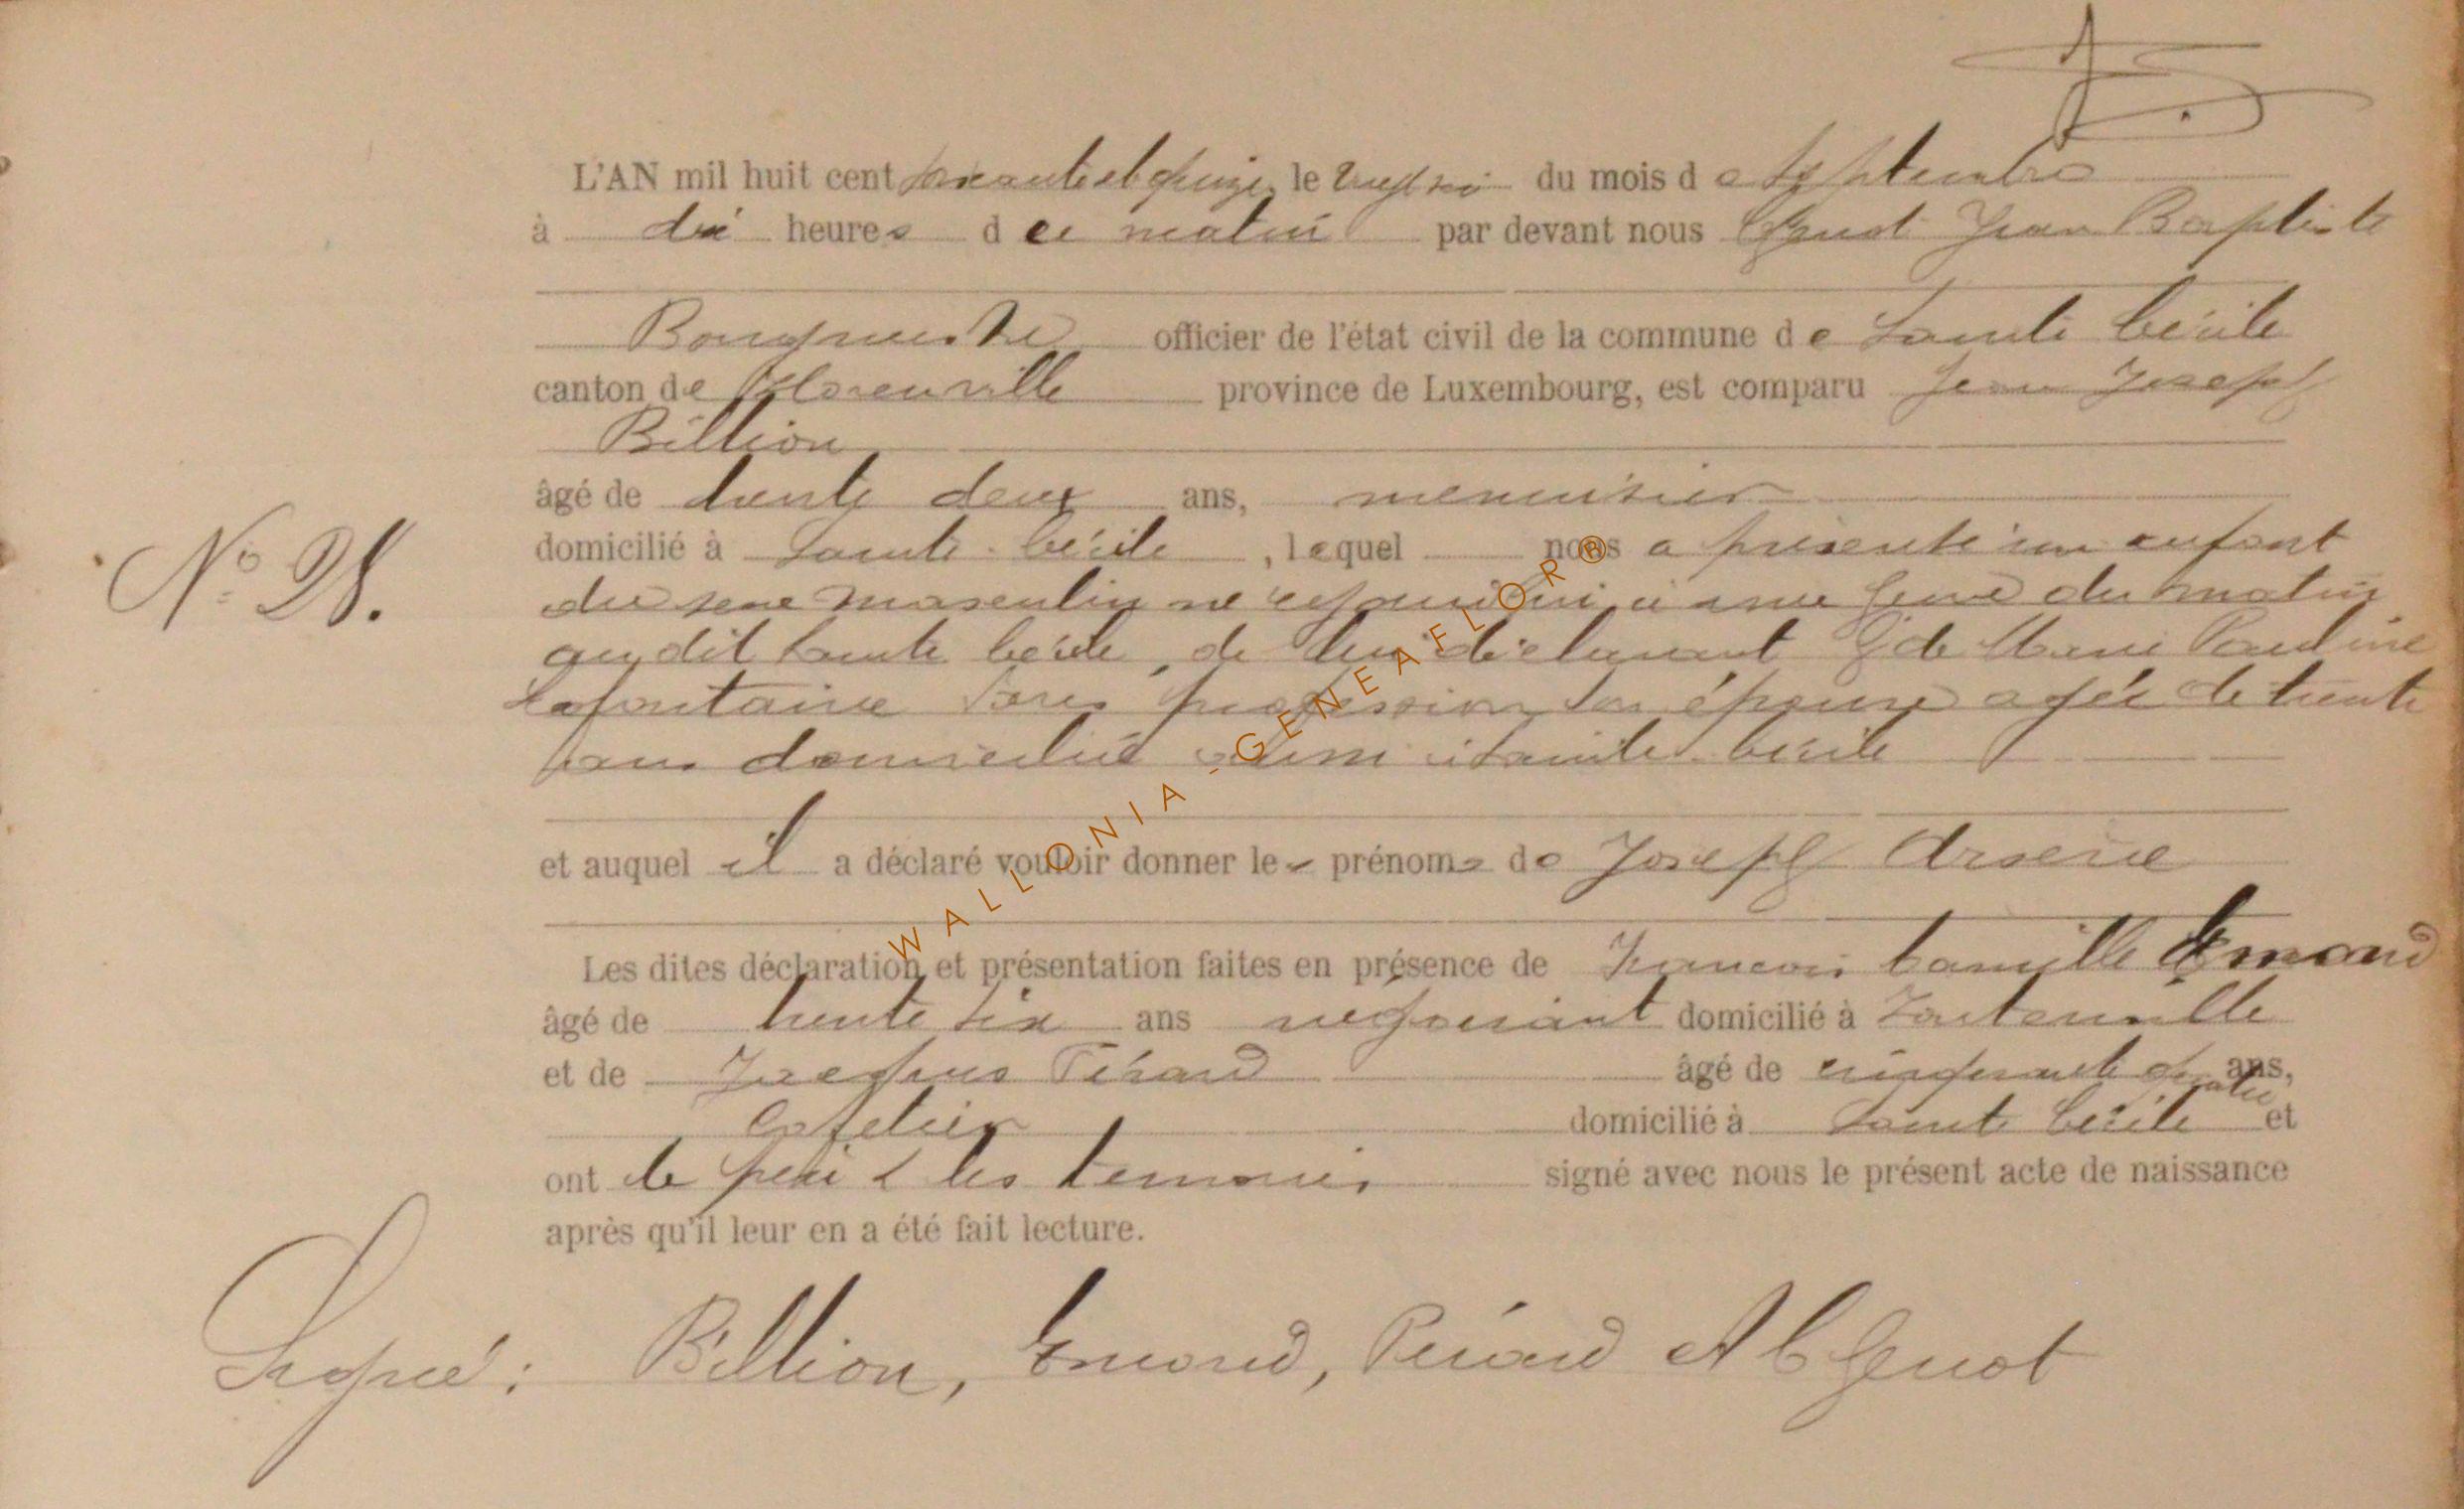 L'AN mil huit cent soixante et quinze, le vingt six du mois de Septembre
à dix heures du matin par devant nous Genot Jean Baptiste
Bourgmestre officier de l'état civil de la commune de Sainte Cécile
canton de Florenville province de Luxembourg, est comparu Jean Joseph
Billion
âgé de trente deux ans, menuisier
domicilié à Sainte-Cécile, lequel nous a présenté un enfant
du sexe masculin né à une heure du matin
audit Sainte Cécile, de lui déclarant & de Marie Pauline
Lafontaine sans profession son épouse agée de trente
ans domiciliée aussi à Sainte-Cécile
N° 28.
et auquel il a déclaré vouloir donner les prénoms de Joseph Arsène
Les dites déclaration et présentation faites en présence de Francois Camille Emond
âgé de trente six ans négociant domicilié à Fontenoille
et de Jacques Pérard âgé de cinquante quatre ans,
Cafetier domicilié à Sainte Cécile et
ont le père & les temoins signé avec nous le présent acte de naissance
après qu'il leur en a été fait lecture.
Signé: Billion, Emond, Pérard et Genot
WALLONIA-GENEAFLOR®